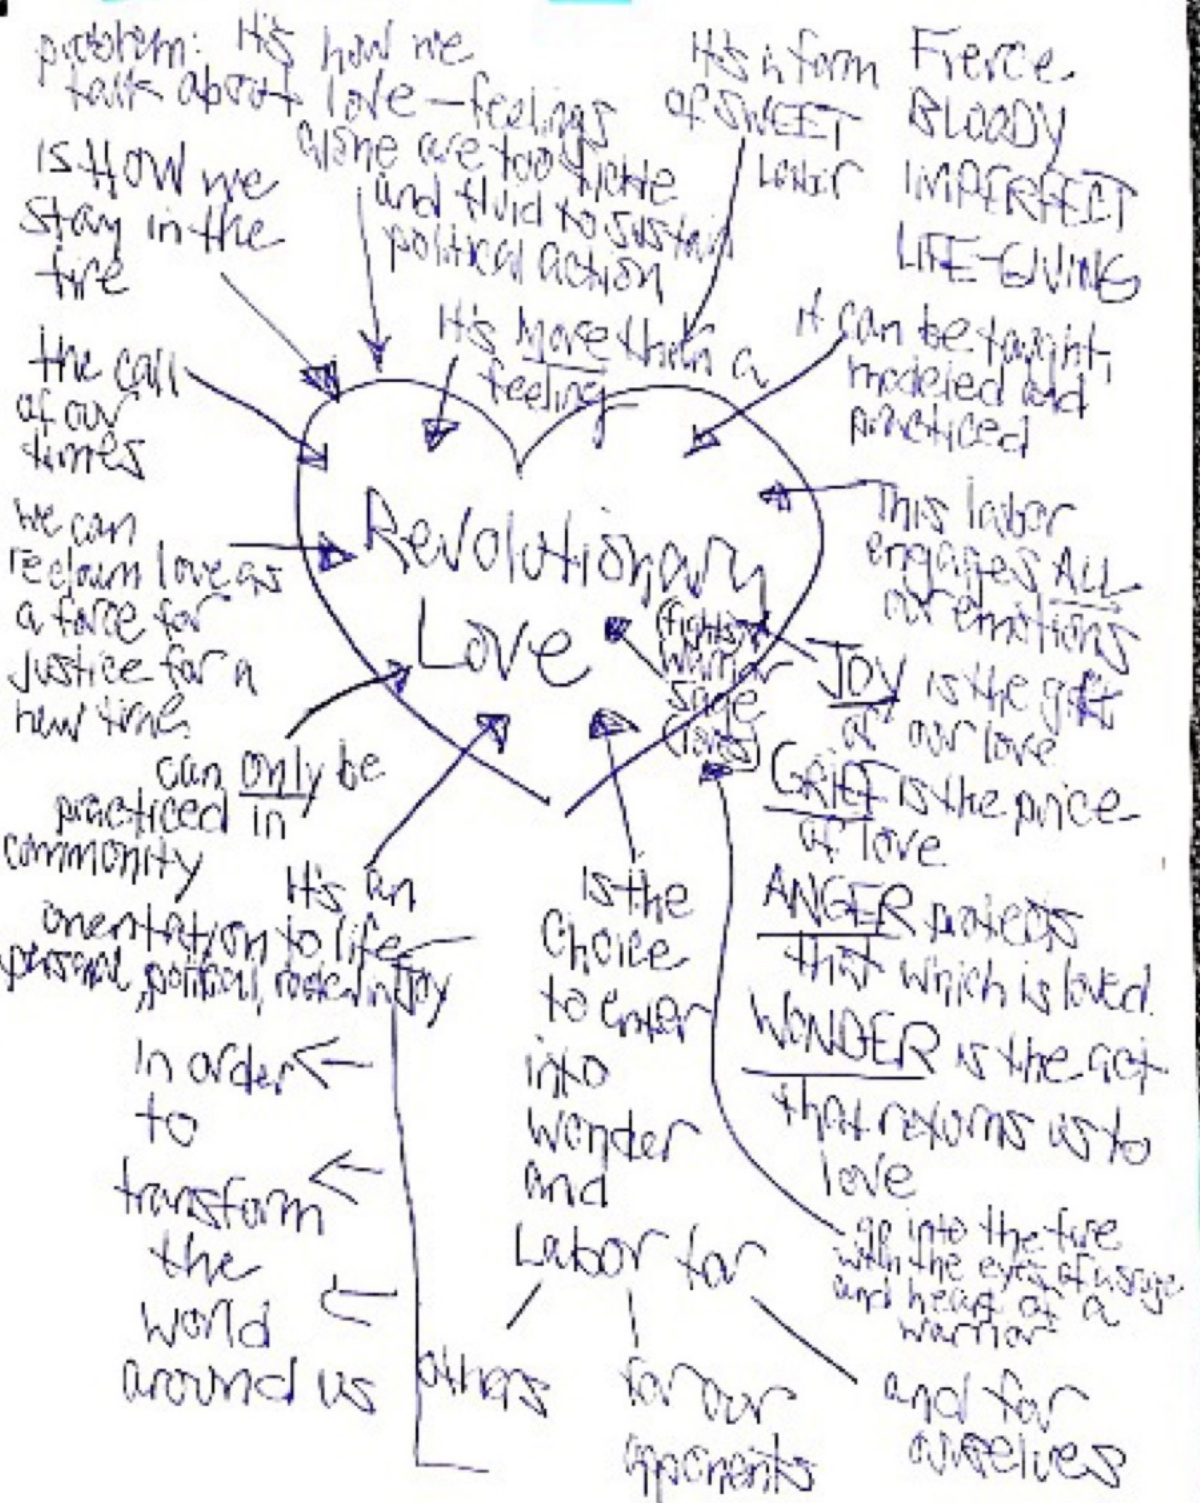 problem: It's how we
talk about love - feelings
alone are too fickle
and fluid to sustain
political action
It's a form
of SWEET
Labor
Fierce
BLOODY
IMPERFECT
LIFE-GIVING
is How we
stay in the
fire
It's More than a
feeling
it can be taught,
modeled and
practiced
the call
of our
times
This labor
engages ALL
our emotions
we can
reclaim love as
a force for
justice for a
new time
Revolutionary
Love
(fights)
warrior
sage
(loves)
JOY is the gift
of our love
GRIEF is the price
of love
ANGER protects
that which is loved.
WONDER is the act
that returns us to
love
can only be
practiced in
community
It's an
orientation to life
personal, political, rooted in Joy
in order
to
transform
the
world
around us
is the
choice
to enter
into
wonder
and
Labor for
others
for our
opponents
and for
ourselves
go into the fire
with the eyes of a sage
and heart of a
warrior